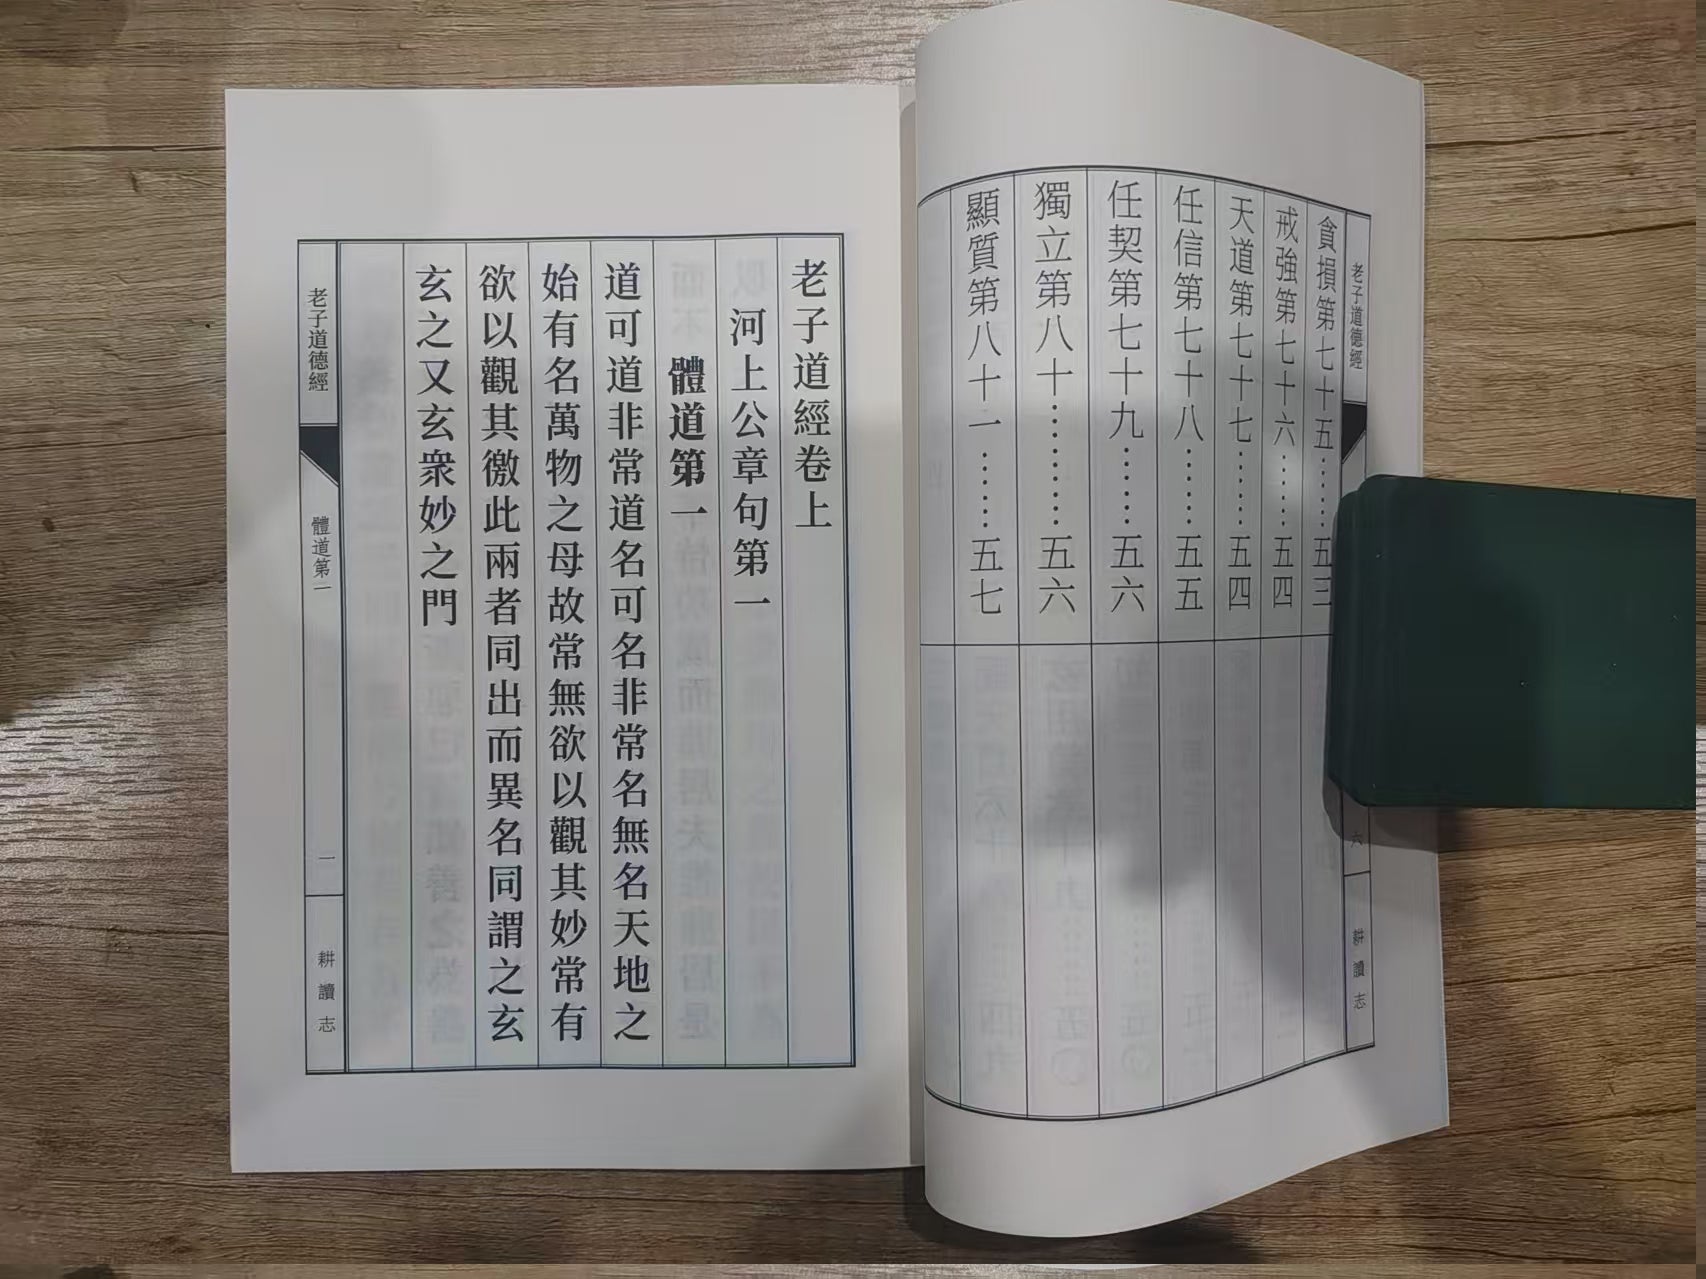 老子道德經
貪損第七十五……五三
戒強第七十六……五四
天道第七十七……五四
任信第七十八……五五
任契第七十九……五六
獨立第八十………五六
顯質第八十一……五七
六
耕讀志
老子道經卷上
河上公章句第一
體道第一
道可道非常道名可名非常名無名天地之
始有名萬物之母故常無欲以觀其妙常有
欲以觀其徼此兩者同出而異名同謂之玄
玄之又玄衆妙之門
老子道德經
體道第一
一
耕讀志